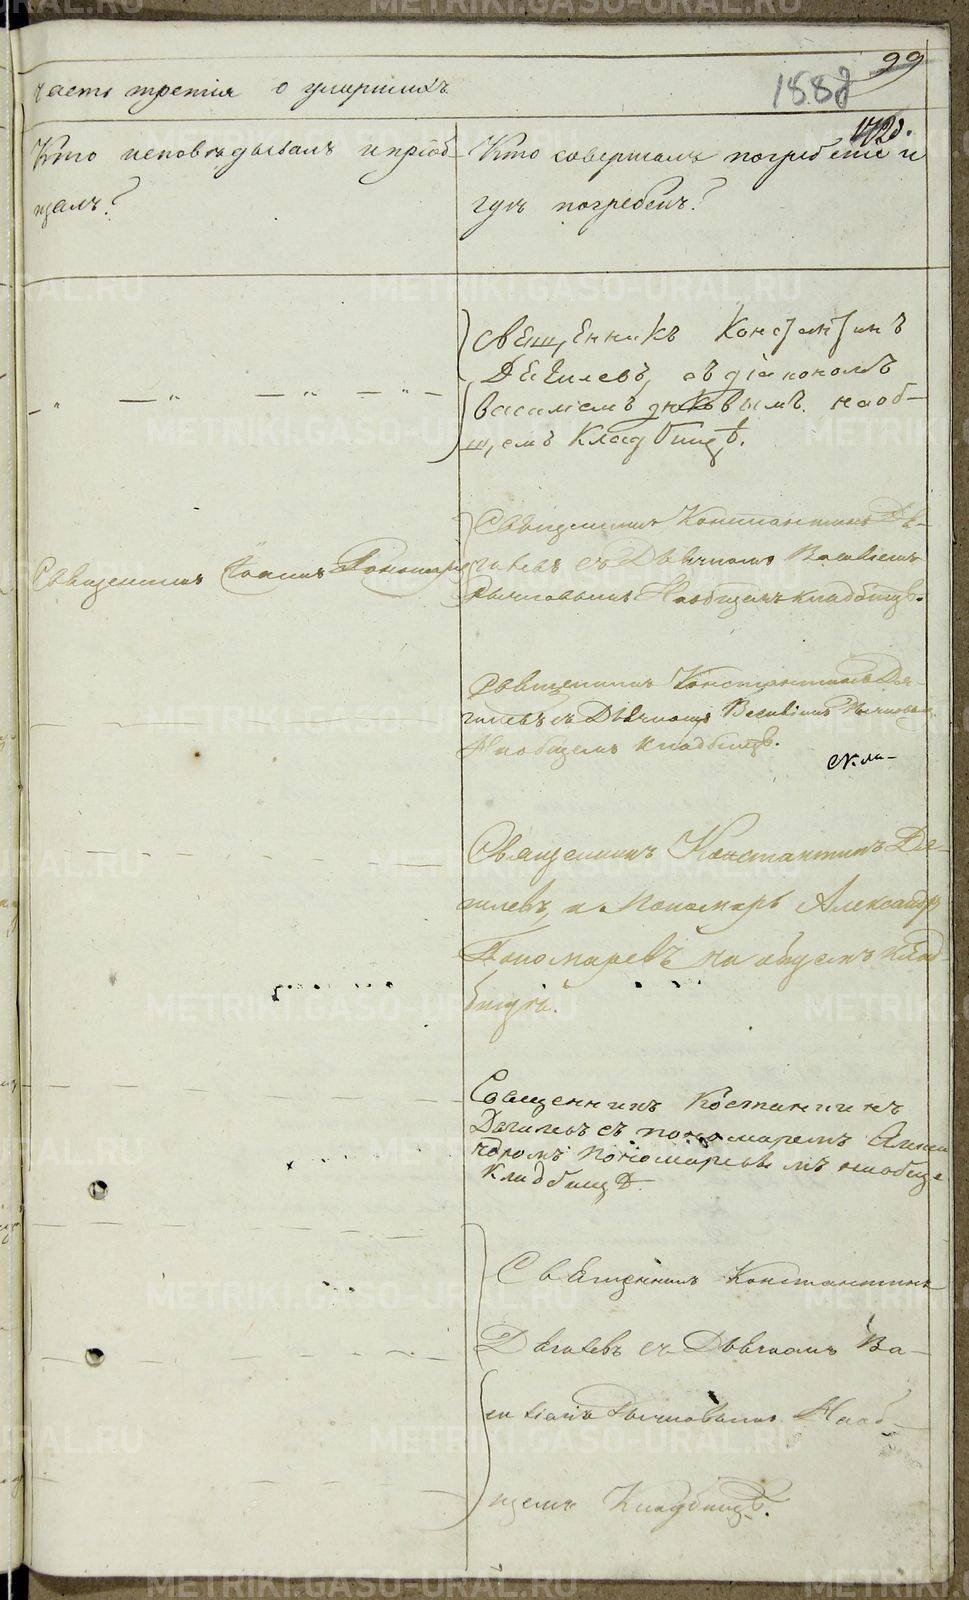 99
1888
часть третія о умершихъ
Кто исповѣдывалъ и пріоб-
щалъ?
Кто совершалъ погребеніе и
гдѣ погребенъ?
Священникъ Константинъ
Дягилевъ, съ діакономъ
Василіемъ наоб-
щемъ Кладбищѣ.
Священникъ Іоаннъ Пономарев
Священникъ Константинъ Дя-
гилевъ съ Дьячкомъ Василіемъ
Наобщемъ кладбищѣ.
Священникъ Константинъ Дя-
гилевъ съ Дьячкомъ Василіемъ
Наобщемъ кладбищѣ.
Священникъ Константинъ Дя-
гилевъ, и Пономарь Александр
Пономаревъ на общемъ клад-
бищѣ.
Священникъ Костантинъ
Дягилевъ съ пономаремъ Алекса
ндромъ Пономаревымъ наобще
Кладбищѣ
Священникъ Константинъ
Дягилевъ съ Дьячкомъ Ва-
силіемъ Наоб-
щемъ Кладбищѣ.
METRIKI.GASO-URAL.RU